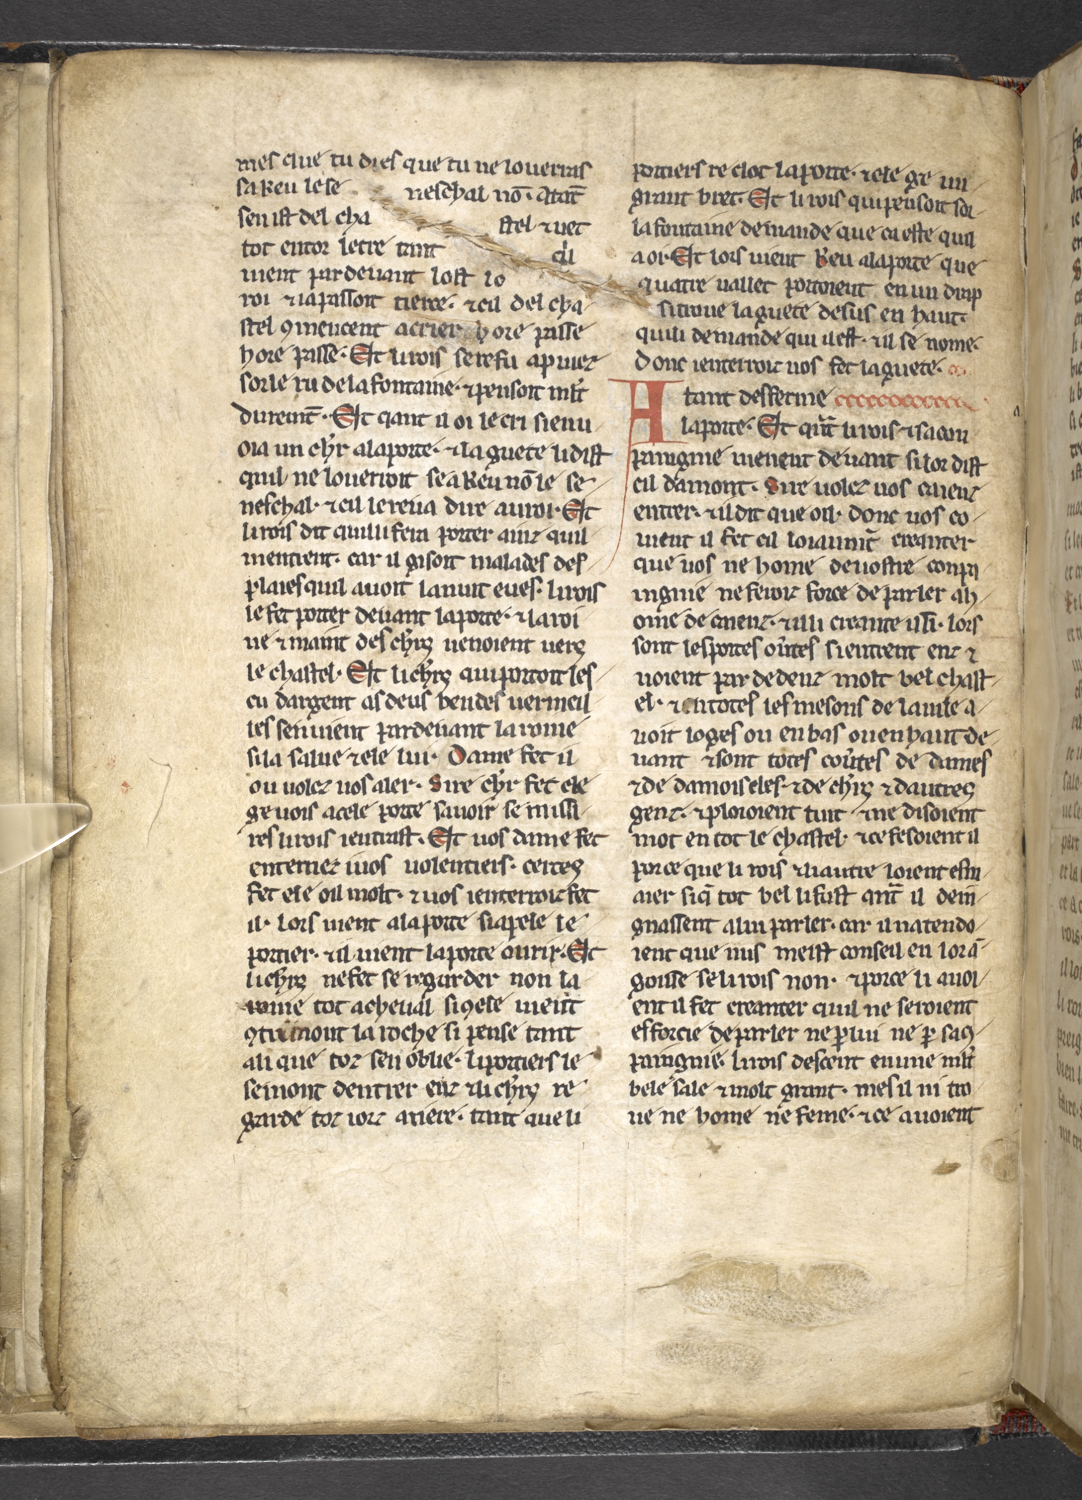 mes que tu dies que tu ne louerras
sa keu le se neschal nō. atāt
sen ist del cha stel ⁊ uet
tot entor le tre tant cil
uient par deuant lost lo
roi ⁊ ia passoit tierce. ⁊ cil del cha
stel 9mencent a crier hore passe
hore passe. Et li rois se refu apuiez
sor le ru de la fontaine. ⁊ pensoit ml't
durem̄t. Et qant il oi le cri si enu
oia un ch'r a la porte. ⁊ la guete li dist
quil ne loueroit se a keu nō le se
neschal. ⁊ cil le reua dire au roi. Et
li rois dit quilli fera porter ainz quil
mentient. car il gisoit malades des
plaies quil auoit la nuit eues. li rois
le fet porter deuant la porte. ⁊ la roi
ne ⁊ maint des ch'rs uenoient uers
le chastel. Et li ch'rs qui portoit les
cu dargent as deus bendes uermeil
les sen uient par deuant la roine
si la salue ⁊ ele lui. Dame fet il
ou uolez uos aler. Sire ch'r fet ele
ge uois a cele porte sauoir se missi
res li rois i enterast. Et uos dame fet
enterriez i uos uolentiers. certes
fet ele oil molt. ⁊ uos i enterroiz fet
il. lors uient a la porte si apele le
portier. ⁊ il uient la porte ourir. Et
li ch'rs ne fet se regarder non la
roine tot a cheual si 9 ele uient
9tremont la roche si pense tant
a li que toz sen oblie. li portiers le
semont dentrer enz ⁊ li ch'rs re
garde toz iorz ariere. tant que li
portiers re clot la porte. ⁊ ele ge un
grant bret. Et li rois qui pensoit sor
la fontaine demande que ce este quil
a oi. Et lors uient keu a la porte que
quatre uallet portoient en un drap
si troue la guete desus en haut.
qui li demande qui il est. ⁊ il se nome.
Donc i enterroiz uos fet la guete.
Atant desferme
la porte. Et qāt li rois ⁊ sa con
paingnie uienent deuant si lor dist
cil damont. Sire uolez uos caienz
entrer. ⁊ il dit que oil. donc uos co
uient il fet cil loiaumt̄ creanter
que uos ne home de uostre conpa
ingnie ne feroiz force de parler a h
ome de caienz. ⁊ il li creante issi. lors
sont les portes ou'tes si entrent enz ⁊
uoient par dedenz molt bel chast
el. ⁊ en totes les mesons de la uile a
uoit loges ou en bas ou en haut de
uant ⁊ sont totes cou'tes de dames
⁊ de damoiseles ⁊ de ch'rs ⁊ dautres
genz. ⁊ ploroient tuit ⁊ ne disoient
mot en tot le chastel. ⁊ ce fesoient il
por ce que li rois ⁊ li autre loient esm
aier si q̄ tot bel li fust qnt il dem̄
gnassent a lui parler. car il natendo
ient que nus meist conseil en lor ā
goisse se li rois non. ⁊ por ce li auoi
ent il fet creanter quil ne seroient
efforcie de parler ne p lui ne p sa 9
paingnie. li rois descent en une ml't
bele sale ⁊ molt grant. mes il ni tro
ue ne home ne feme. ⁊ ce auoient